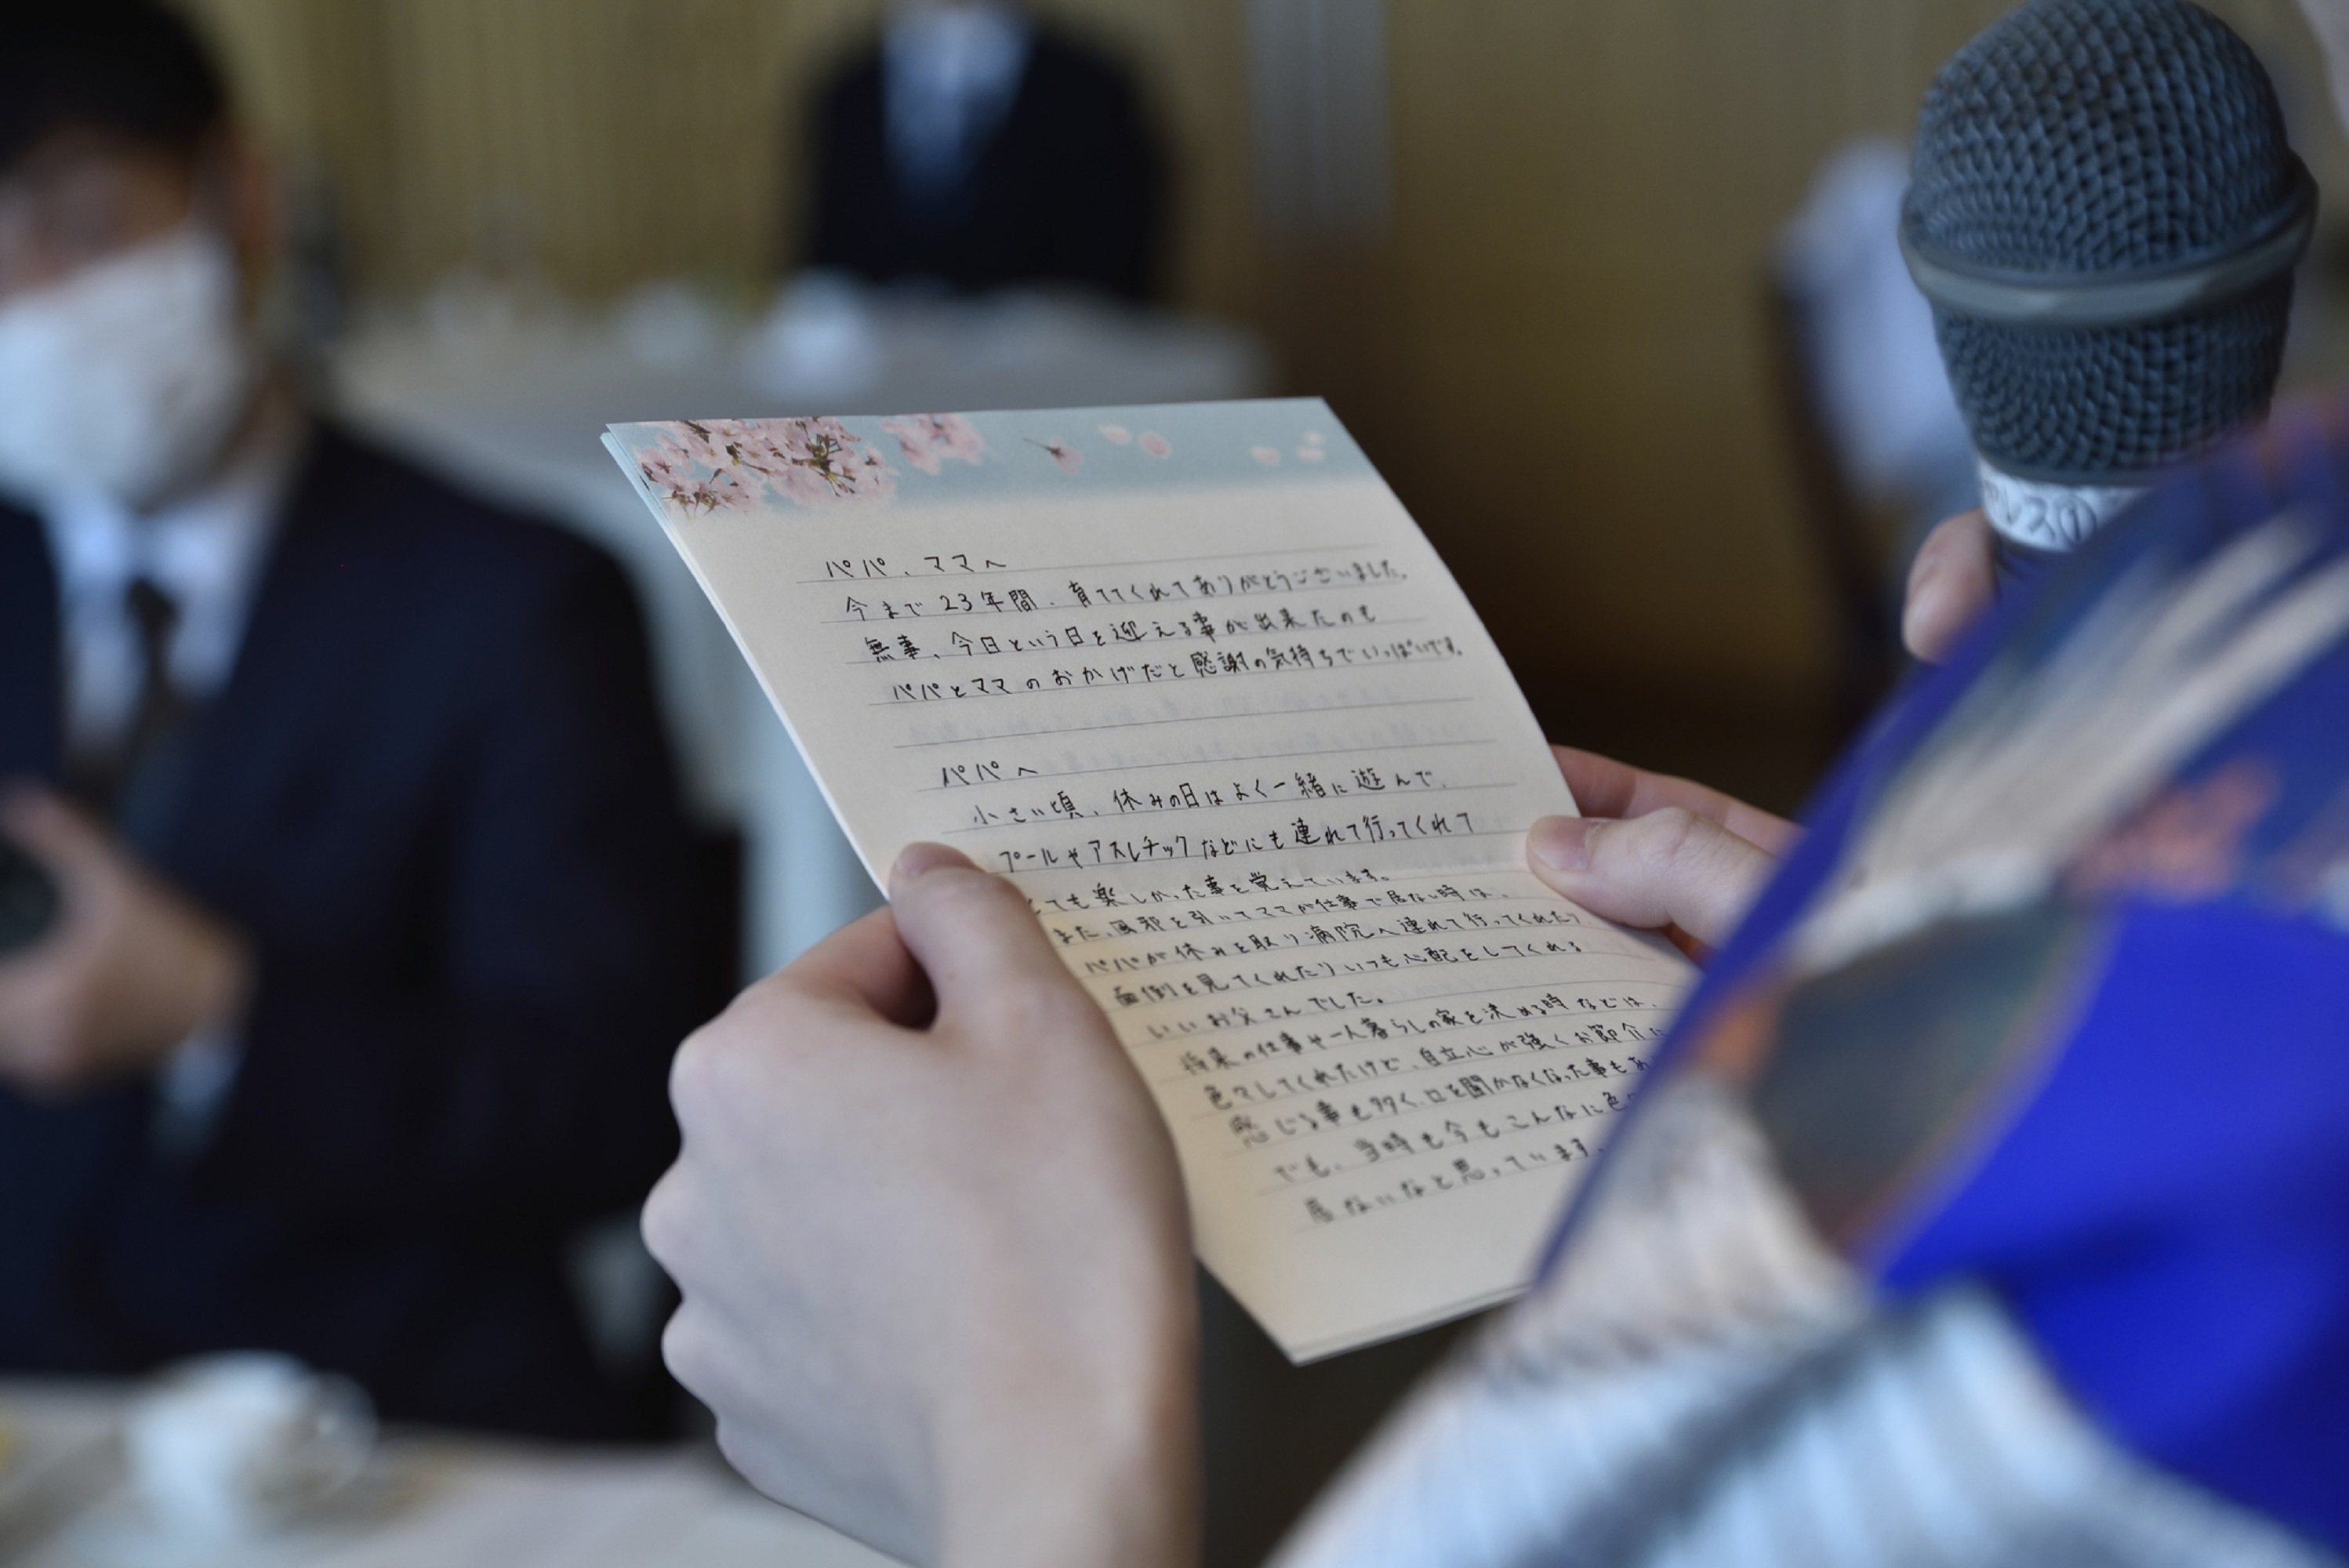 パパ、ママへ
今まで23年間、育ててくれてありがとうございました。
無事、今日という日を迎える事が出来たのも
パパとママのおかげだと感謝の気持ちでいっぱいです。
パパへ
小さい頃、休みの日はよく一緒に遊んで、
プールやアスレチックなどにも連れて行ってくれて
ても楽しかった事を覚えています。
また、風邪を引いてママが仕事で居ない時は、
パパが休みを取り病院へ連れて行ってくれたり
面倒を見てくれたりいつも心配をしてくれる
いいお父さんでした。
将来の仕事や一人暮らしの家を決める時などは、
色々してくれたけど、自立心が強くお節介に
感じる事も多く、口を聞かなくなった事もあ
でも、当時も今もこんなに色
居ないなと思っています。
レスの